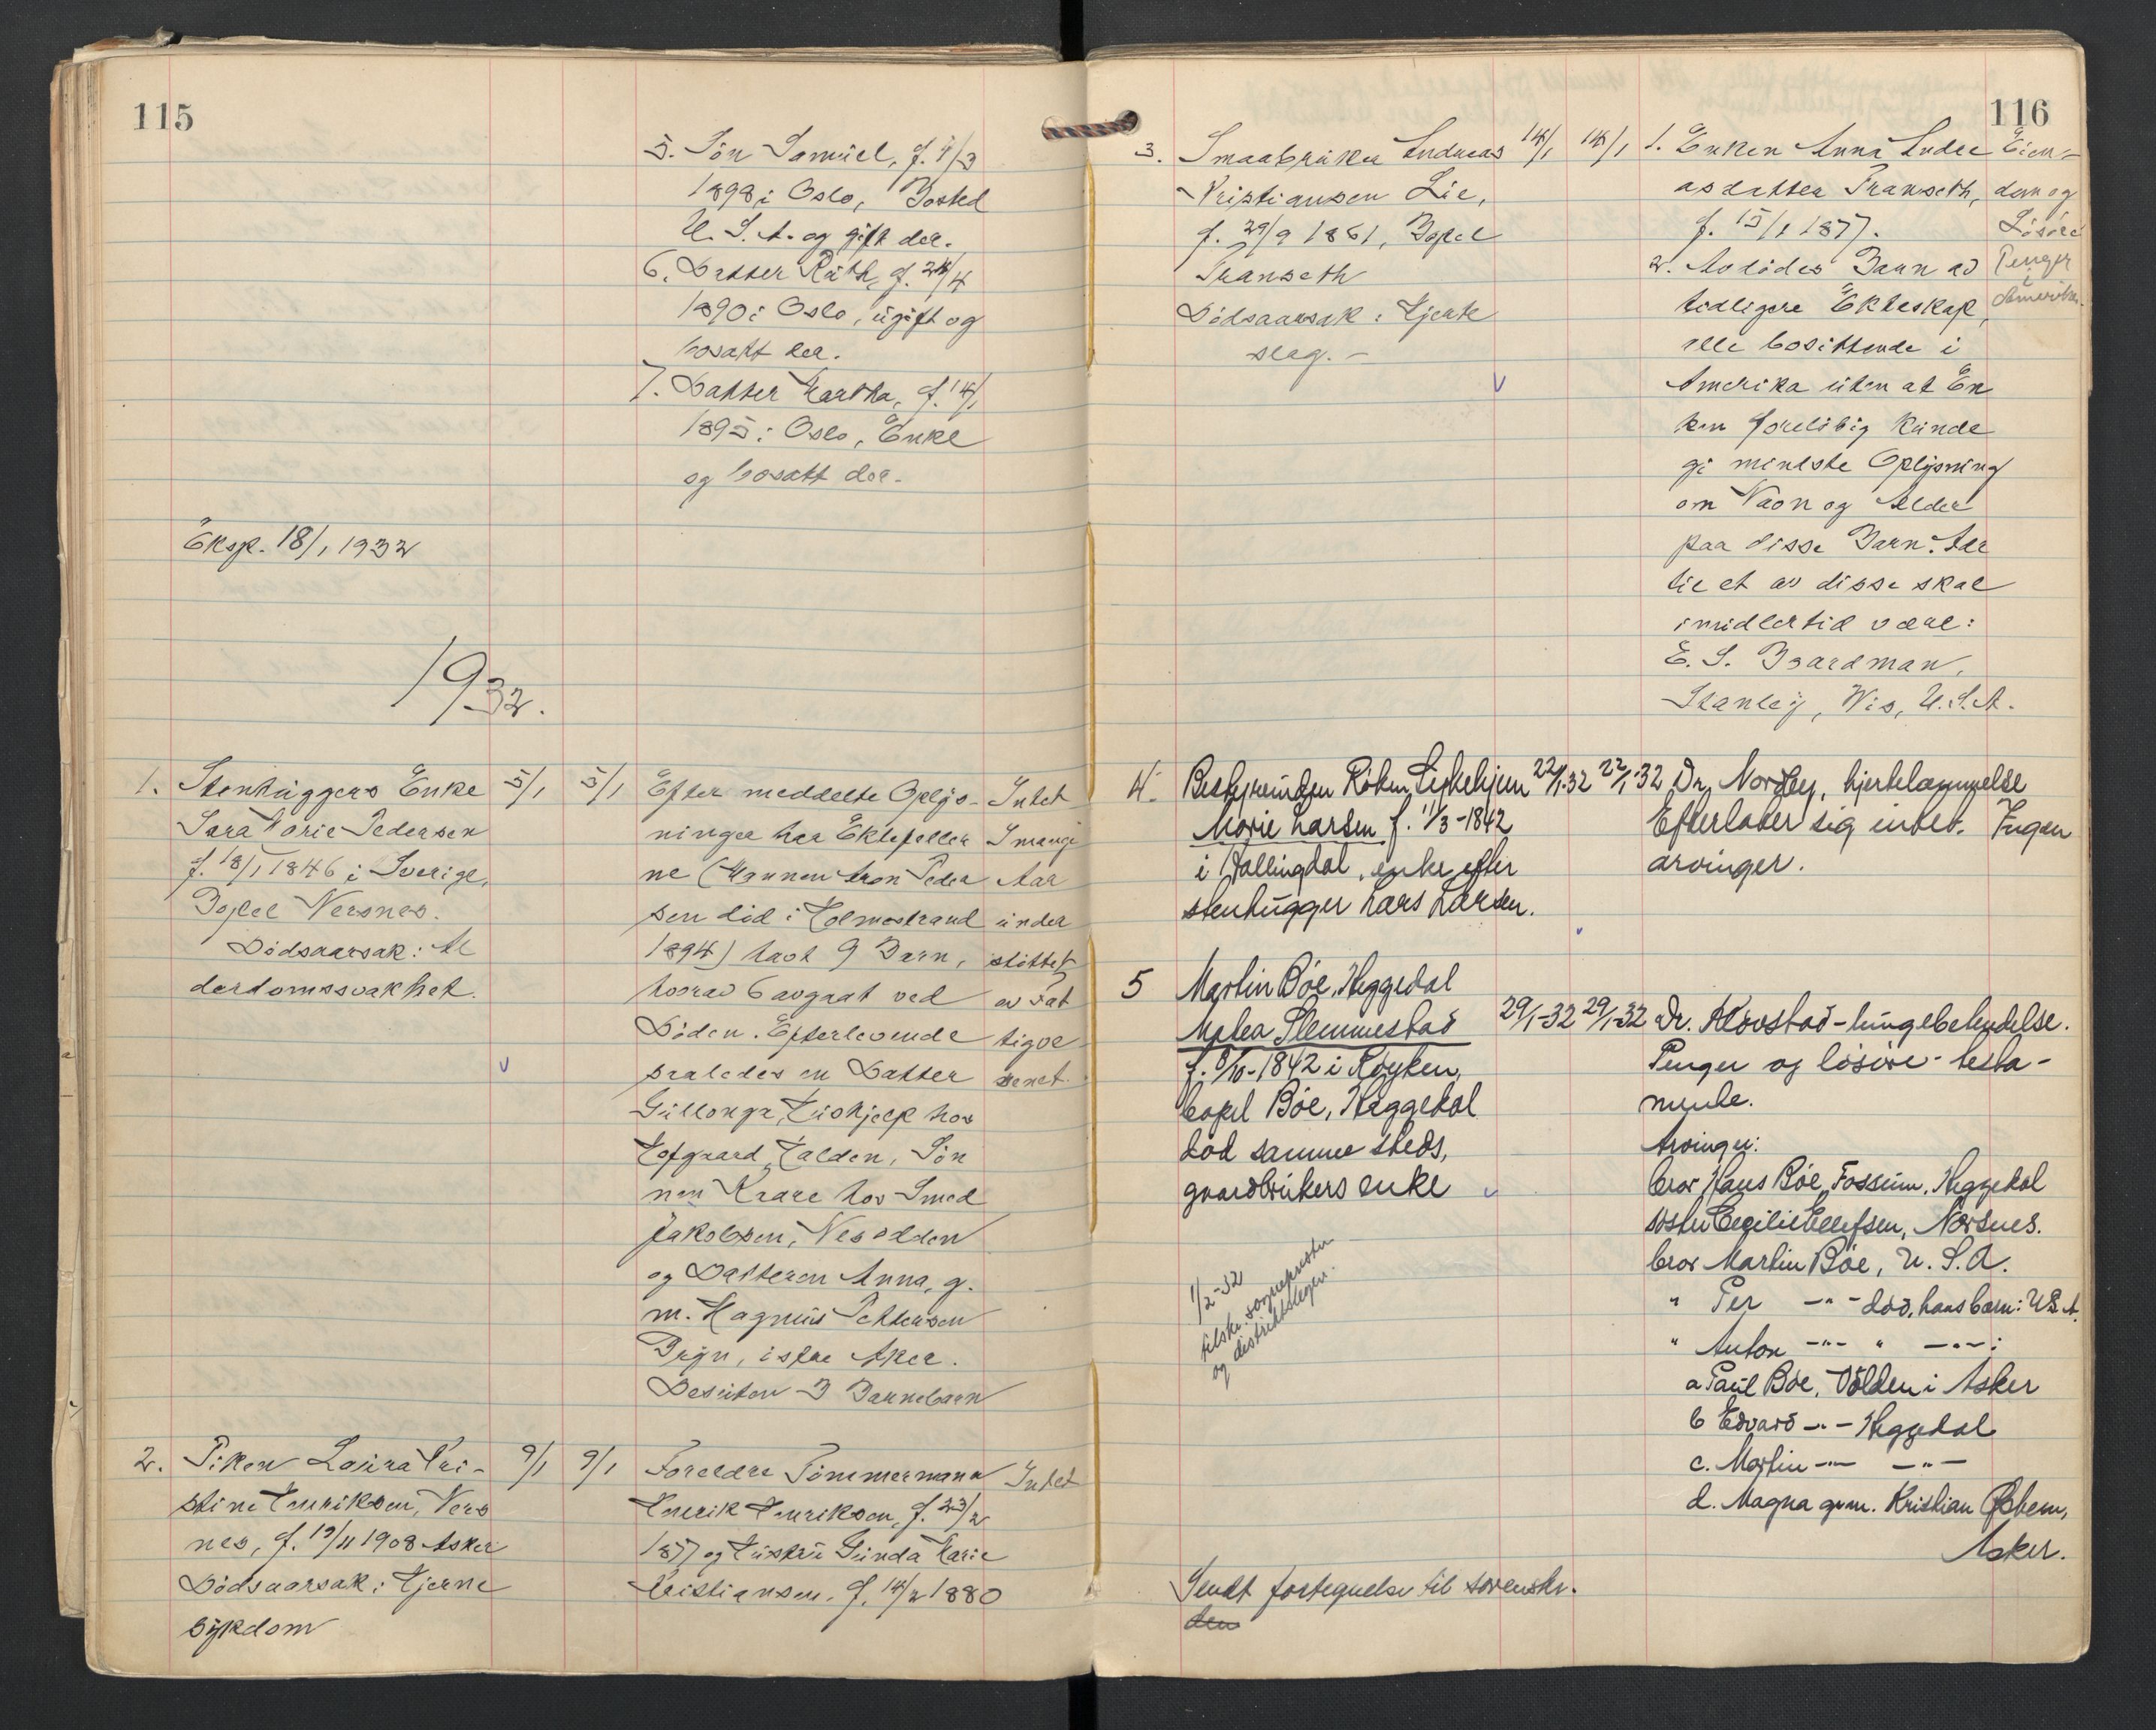 115
5. Sön Samuel, f. 4/3
1898 i Oslo, Bosted
U. S. A. og gift der.
6. Datter Ruth, f. 24/4
1890 i Oslo, ugift og
bosatt der.
7. Datter Martha, f. 14/1
1895 i Oslo, Enke
og bosatt der.
Eksp. 18/1 1932
1932.
1. Stenhuggers Enke 5/1 5/1
Sara Marie Pedersen
f. 18/1 1846 i Sverige,
Bopel Nersnes.
Dödsaarsak: Al
derdomssvakhet.
Efter meddelte Oplys-
ninger har Ektefeller
ne (Mannen Aron Peder
sen död i Holmestrand
1894) havt 9 Barn,
hvorav 6 avgaat ved
Döden. Efterlevende
saaledes en Datter
Gullonga, Hushjelp hos
Hofgaard, Halden, Sön
nen Kaare hos Smed
Jakobsen, Nesodden
og Datteren Anna, g.
m. Magnus Pettersen
Bryn, istre Aker.
Desuten 3 Barnebarn
Intet
I mange
Aar
under
stöttet
av Fat
tigve
senet.
2. Piken Laura Kri- 9/1 9/1
stine Henriksen, Ners
nes, f. 19/11 1908 Asker
Dödsaarsak: Hjerne
sykdom
Foreldre Tömmermann
Henrik Henriksen, f. 23/2
1877 og Hustru Gunda Marie
Kristiansen. f. 14/2 1880
Intet
116
3. Smaabruker Andreas 14/1 14/1
Kristiansen Lie,
f. 29/9 1861, Bopel
Transeth
Dödsaarsak: Hjerte
slag. -
1. Enken Anna Andre
asdatter Transeth,
f. 15/1 1877.
2. Avdödes Barn av
tidligere Ekteskap,
alle bosittende i
Amerika uten at En
ken forelöbig kunde
gi mindste Oplysning
om Navn og Alder
paa disse Barn. Adr
til et av disse skal
imidlertid være:
E. S. Boardman,
Stanley, Wis, U.S.A.
Eien-
dom og
Lösöre
Penger
i
Amerika.
4. Bestyrerinden Röken Sykehjem 22/1-32 22/1-32
Marie Larsen f. 11/3-1842
i Hallingdal, enke efter
stenhugger Lars Larsen.
Dr. Nordby, hjertelammelse
Efterlater sig intet. Ingen
arvinger.
5 Martin Böe, Heggedal
Matea Slemmestad 29/1-32 29/1-32
f. 8/10-1842 i Röyken,
bopel Böe, Heggedal
död samme steds,
gaardbrukers enke
Dr. Klovstad - lungebetendelse.
Penger og lösöre - testa-
mente.
Arvinger:
bror Hans Böe, Fossum, Heggedal
söster Cecilie Ellefsen, Nersnes.
bror Martin Böe, U. S. A.
" Per -"- död, hans barn: U.S.A.
" Anton -"- " -"-:
a Paul Böe, Völden i Asker
b Edvard -"- Heggedal
c. Martin -"- -"-
d. Magna g.m. Kristian
Asker.
1/2-32
tilskr. sogneprester
og distriktslegen.
Sendt fortegnelse til sorenskr.
den